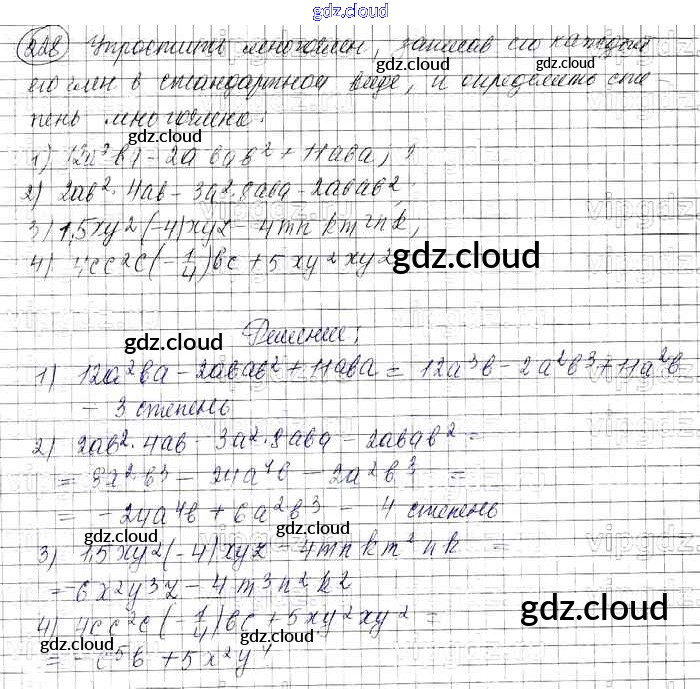 gdz.cloud
228 Упростить многочлен, записав его каждый
его член в стандартном виде, и определить сте-
пень многочлена:
gdz.cloud
1) 12a²ba - 2abab² + 11aba;
2) 2ab²·4ab - 3a²·8aba - 2abab²;
3) 1,5xy²(-4)xyz - 4mnkm²nk;
4) 4cc²c(-1/4)bc + 5xy²xy²
gdz.cloud gdz.cloud
Решение:
gdz.cloud
1) 12a²ba - 2abab² + 11aba = 12a³b - 2a²b³ + 11a²b
- 3 степень
2) 2ab²·4ab - 3a²·8aba - 2abab² =
= 8a²b³ - 24a⁴b - 2a²b³ =
= -24a⁴b + 6a²b³ - 4 степень
gdz.cloud gdz.cloud
3) 1,5xy²(-4)xyz - 4mnkm²nk =
= 6x²y³z - 4m³n²k²
gdz.cloud
4) 4cc²c(-1/4)bc + 5xy²xy² =
gdz.cloud gdz.cloud
= -c⁵b + 5x²y⁴